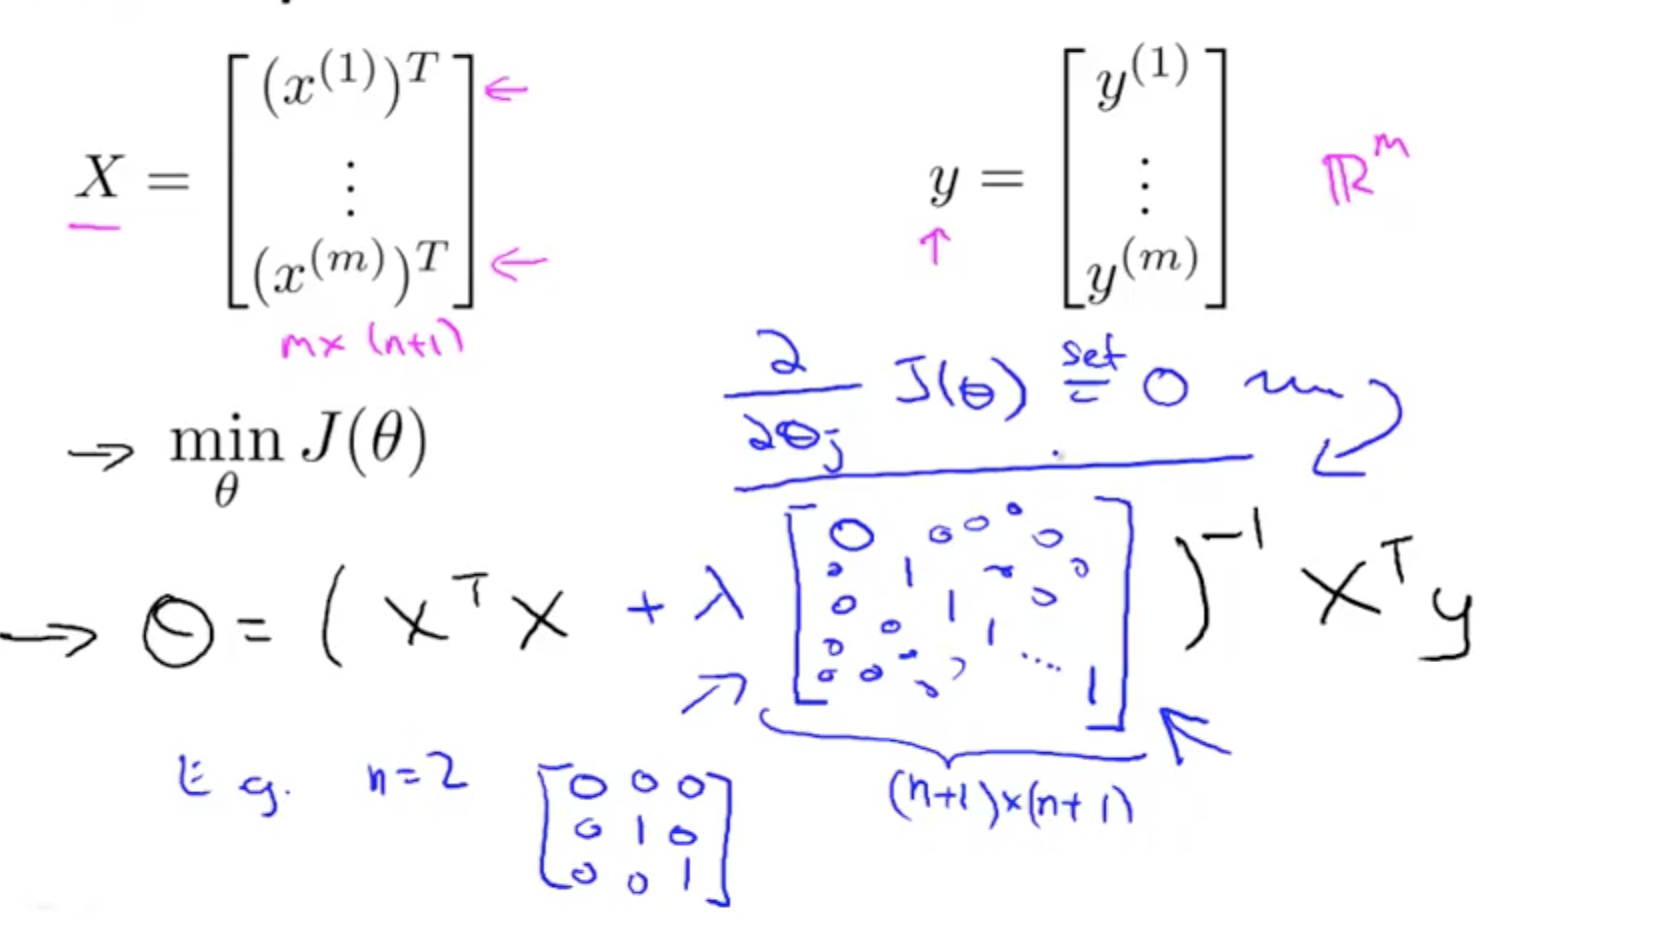 X = [ (x^(1))^T ⋮ (x^(m))^T ] ← ←
m × (n+1)
y = [ y^(1) ⋮ y^(m) ] ℝ^m
↑
∂/∂θj J(θ) set = 0
→ min_θ J(θ)
→ θ = ( X^T X + λ [ 0 0 0 0 0 1 0 0 1 0 0 1 0 0 0 .... 1 ] )^-1 X^T y
(n+1)×(n+1)
E.g. n=2 [ 0 0 0
0 1 0
0 0 1 ]